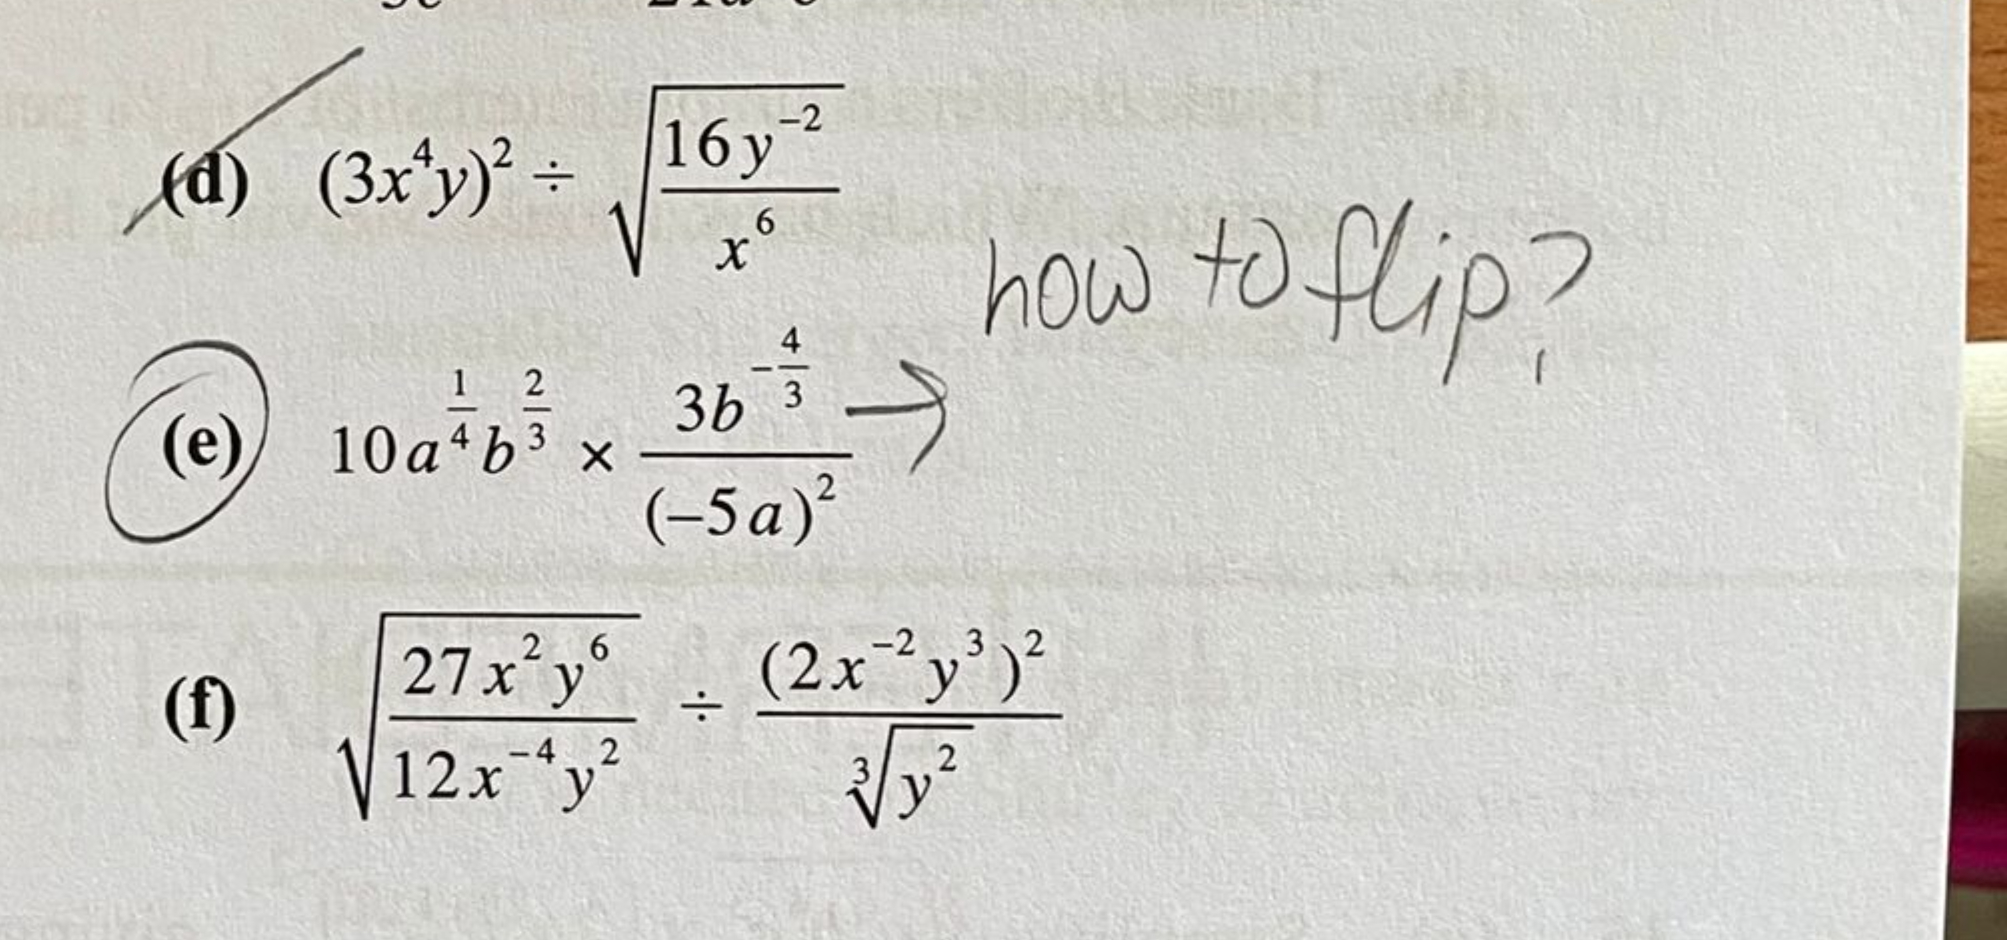 (d) (3x⁴y)² ÷ √(16y⁻²/x⁶)
how to flip?
(e) 10a^(1/4)b^(2/3) × 3b^(-4/3)/(–5a)² →
(f) √(27x²y⁶/12x⁻⁴y²) ÷ (2x⁻²y³)²/∛(y²)